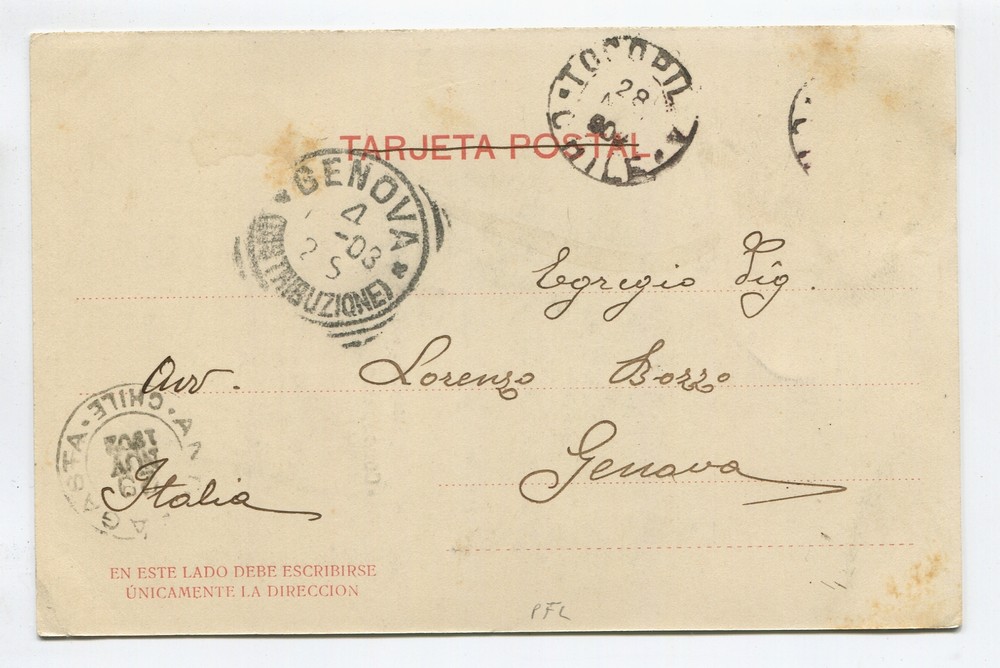 TARJETA POSTAL
TOCOPILLA
28
902
CHILE
GENOVA
4
-03
2 S
(DISTRIBUZIONE)
Egregio Sig.
Avv. Lorenzo Bozzo
Genova
Italia
CHILE
1902
NOV
EN ESTE LADO DEBE ESCRIBIRSE
ÚNICAMENTE LA DIRECCION
PFL